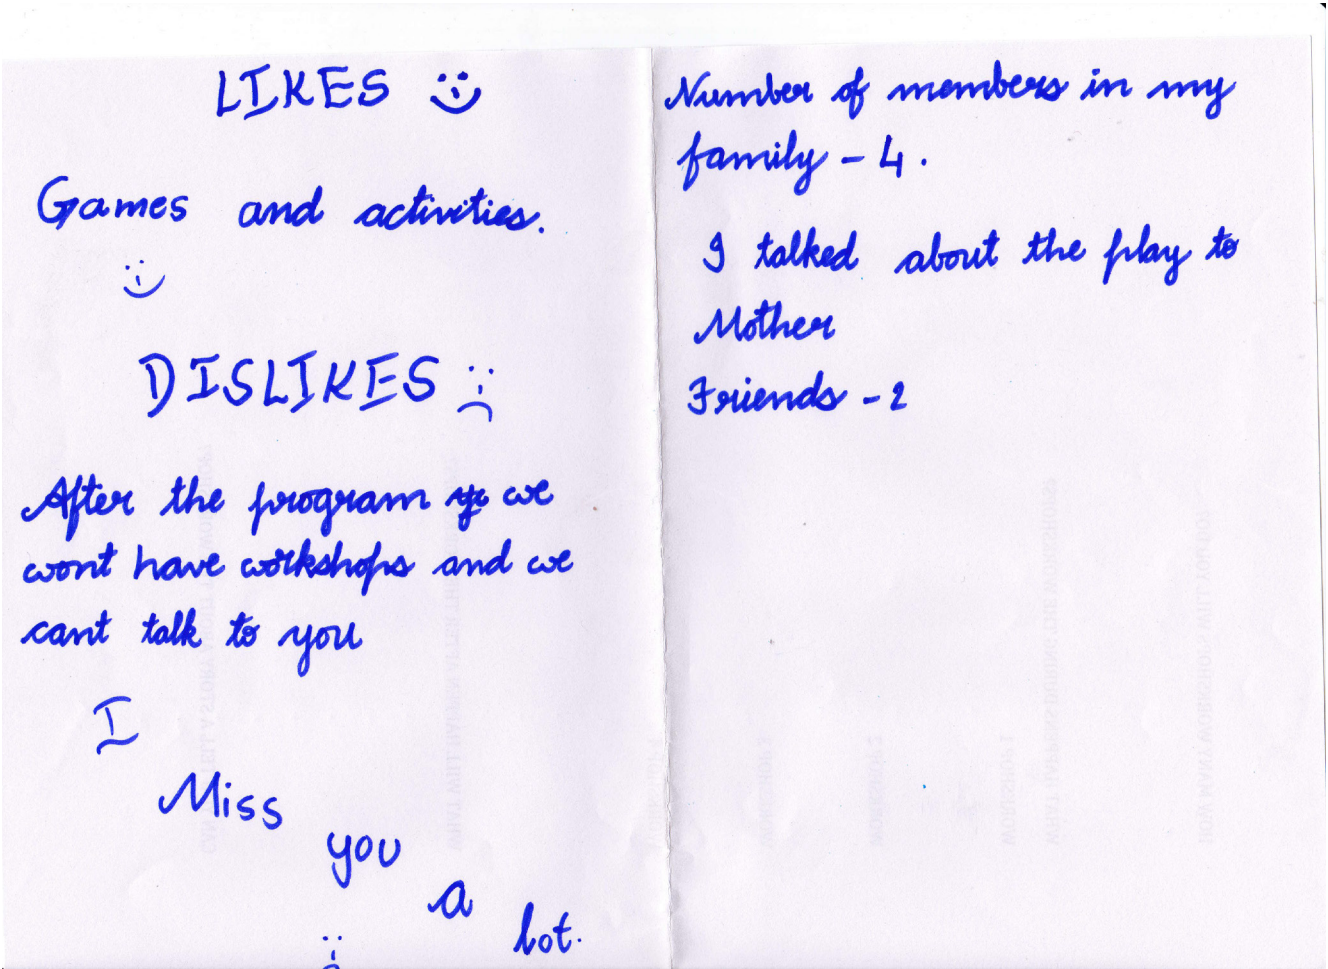 LIKES
Games and activities.
DISLIKES
After the program we
wont have workshops and we
cant talk to you
I
Miss
you
a
lot.
Number of members in my
family - 4.
I talked about the play to
Mother
Friends - 2